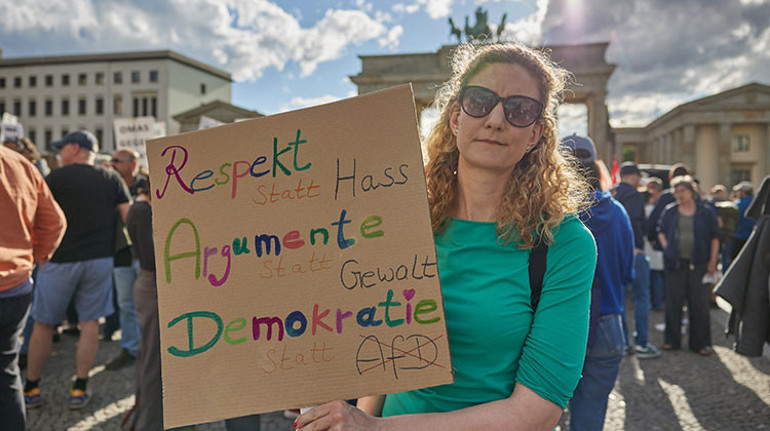 Respekt
Statt Hass
Argumente
Statt Gewalt
Demokratie
Statt AfD
OMAS
GEGEN